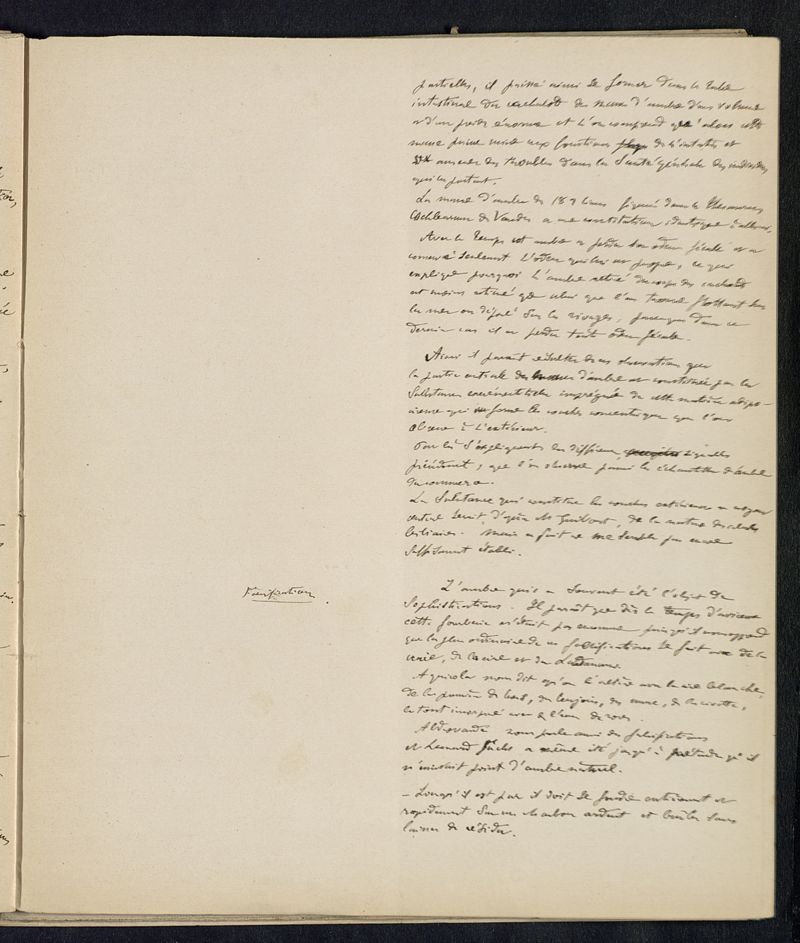 partielles, il puisse ainsi se former dans le tube
intestinal du cachalot des masses d'ambre d'un volume
et d'un poids énorme et l'on comprend que alors cette
masse puisse nuire aux fonctions de l'intestin et
amener des troubles dans la Santé générale des individus
qui les portent.
La masse d'ambre de 182 livres figurée dans le Thesaurus
Cochlearum de
Avec le temps cet ambre a perdu son odeur fécale et a
conservé seulement l'odeur qui lui est propre, ce qui
explique pourquoi l'ambre retiré du corps des cachalots
est moins estimé que celui que l'on trouve flottant sur
la mer ou déposé sur les rivages, parce que dans ce
dernier cas il a perdu toute odeur fécale.
Ainsi il parait résulter de ces observations que
la partie centrale des masses d'ambre est constituée par la
Substance imprégnée de cette matière
qui forme les couches concentriques que l'on
observe à l'extérieur.
Par là s'expliquent les différences signalées
précédemment, que l'on observe parmi les échantillons d'ambre
du commerce.
La Substance qui constitue les couches extérieures au noyau
central serait, d'après Mr Guibourt, de la nature des calculs
biliaires. Mais ce fait ne me semble pas encore
suffisamment établi.
Falsification
L'ambre gris a souvent été l'objet de
Sophistications. Il paraît que dès le temps d'avicenne
cette fourberie n'était pas inconnue puisqu'il
que les plus ordinaires de ces falsifications se fait avec de la
cire, et du Ladanum.
nous dit qu'on l'altère avec la cire blanche,
de la poudre de bois, du benjoin, du musc, de la civette,
le tout incorporé avec de l'eau de roses.
Aldrovande nous parle aussi des falsifications
et Leonard Fuchs a même été jusqu'à prétendre qu'il
n'existait point d'ambre naturel.
– Lorsqu'il est pur il doit se fondre entièrement et
rapidement sur un charbon ardent et brûler sans
laisser de résidu.